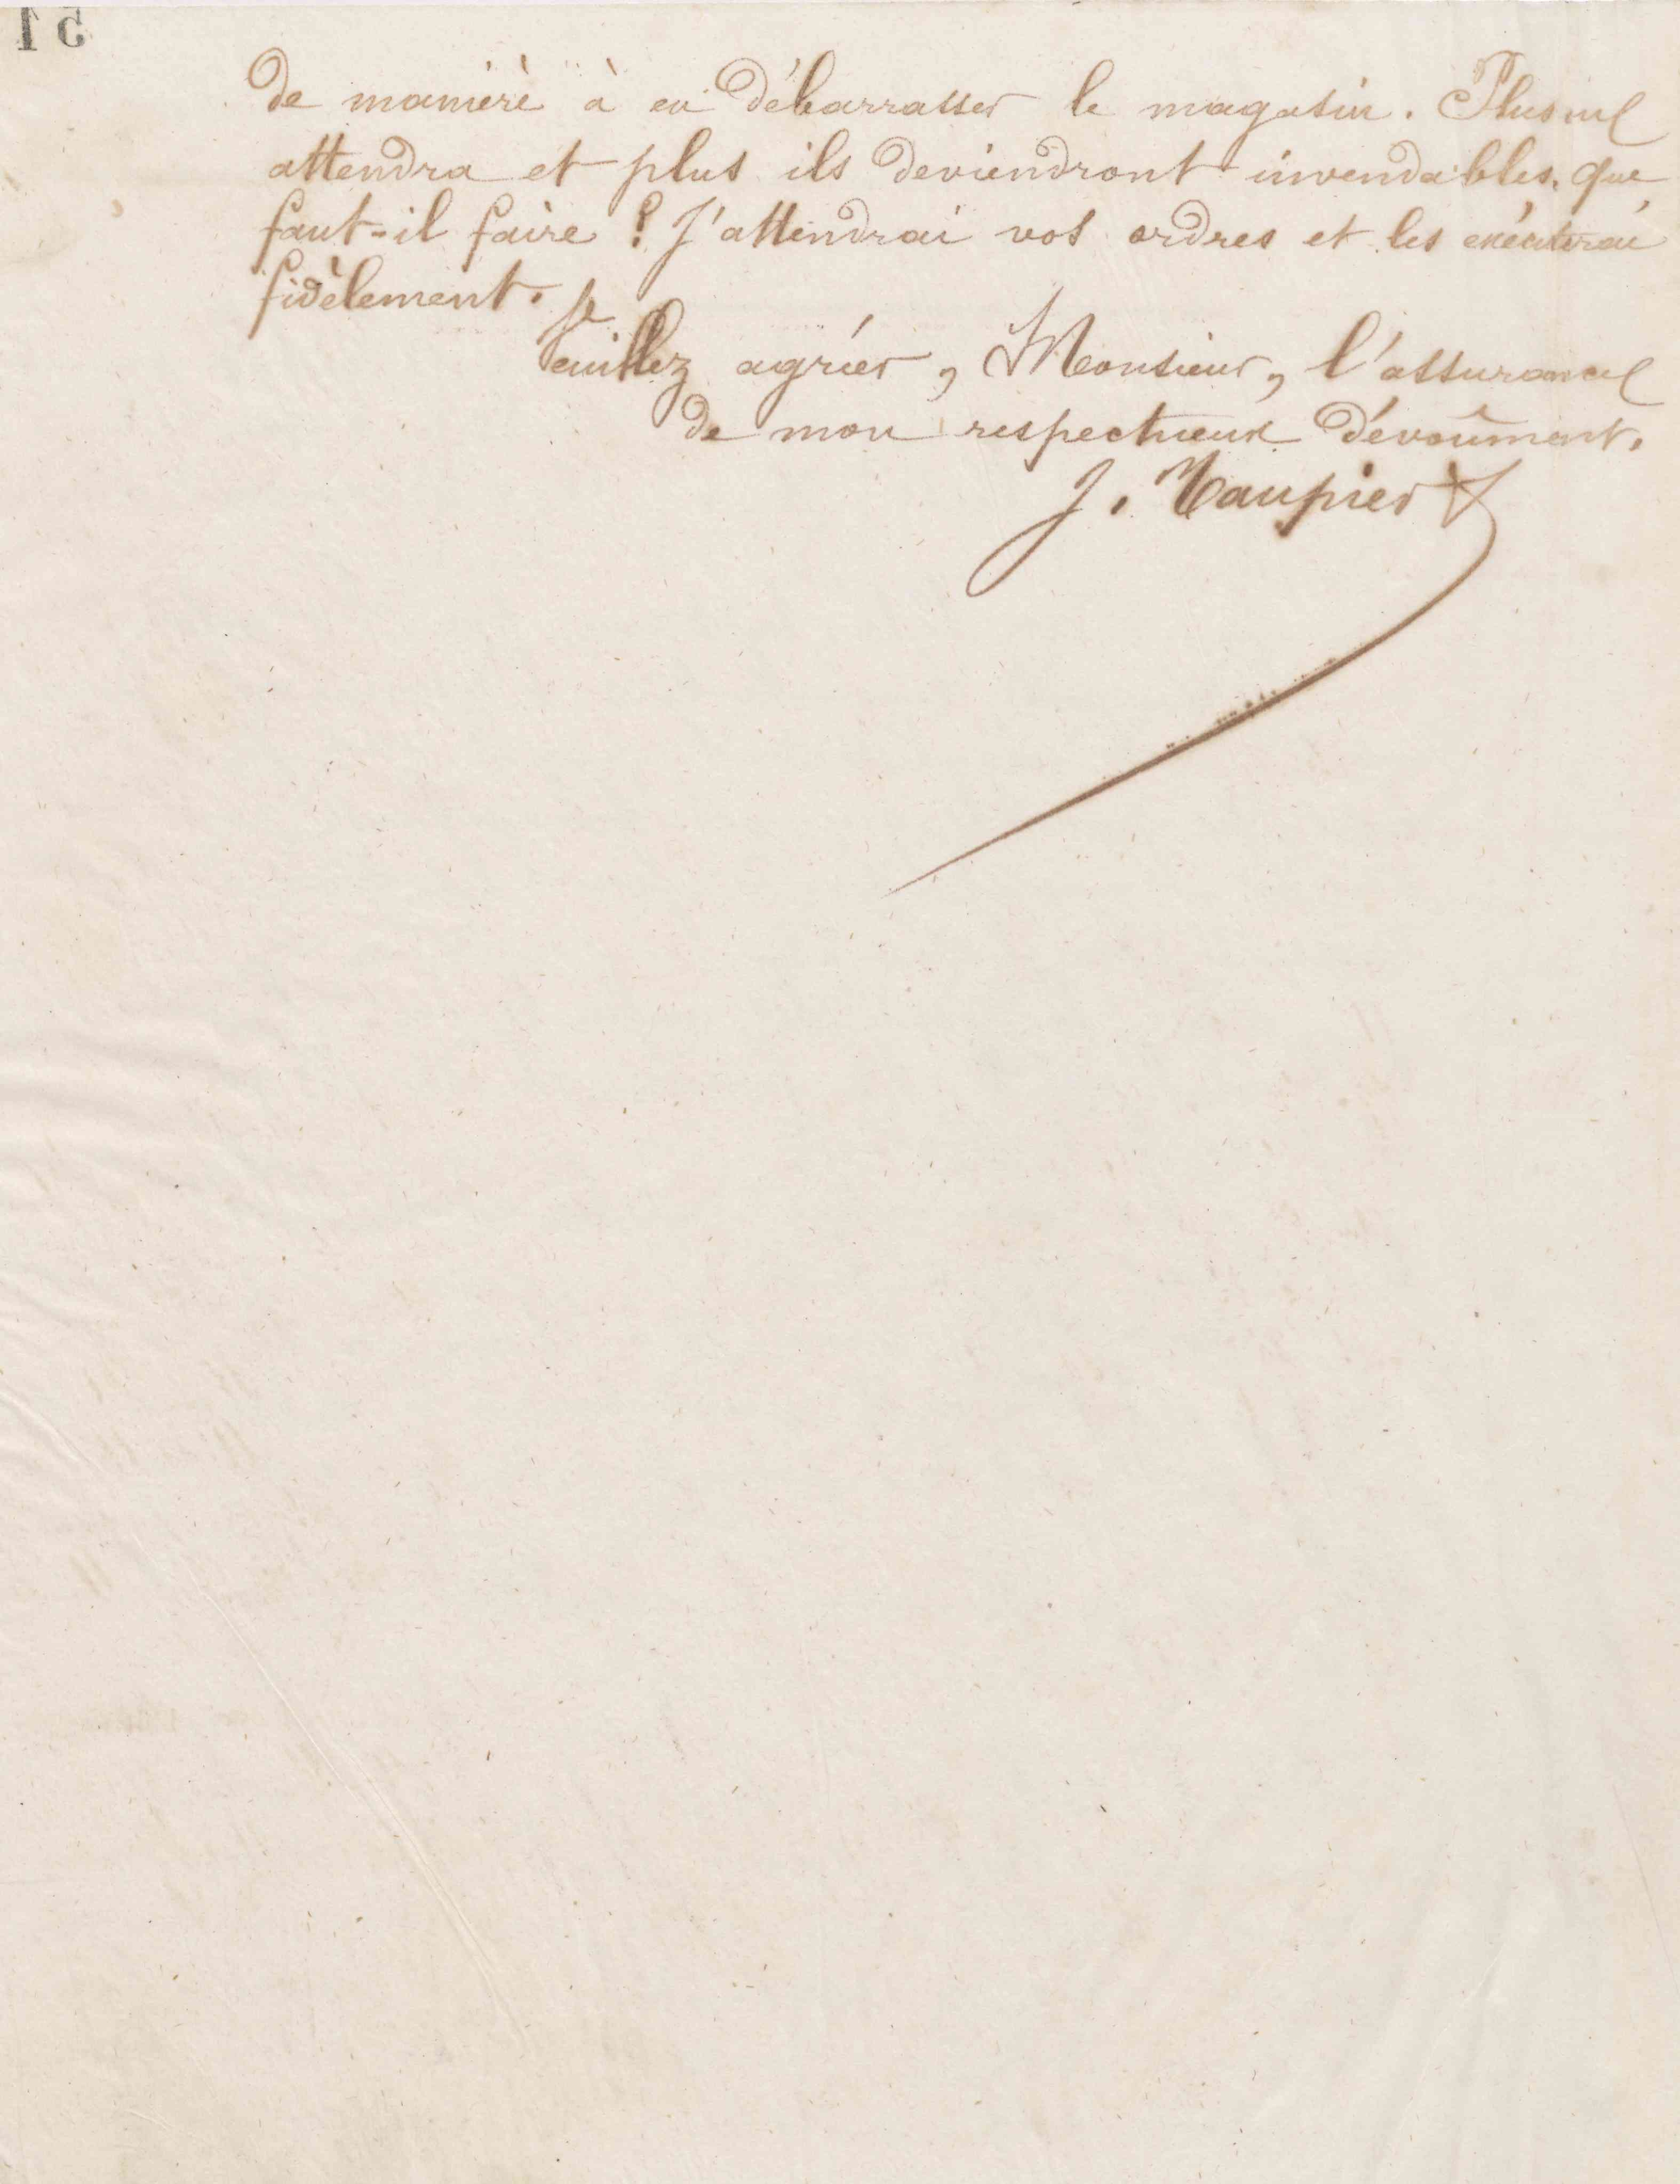 de manière à en débarrasser le magasin. Plus on
attendra et plus ils deviendront invendables. Que
faut-il faire ? J'attendrai vos ordres et les exécuterai
fidèlement.
Veuillez agréer, Monsieur, l'assurance
de mon respectueux dévoûment.
J.